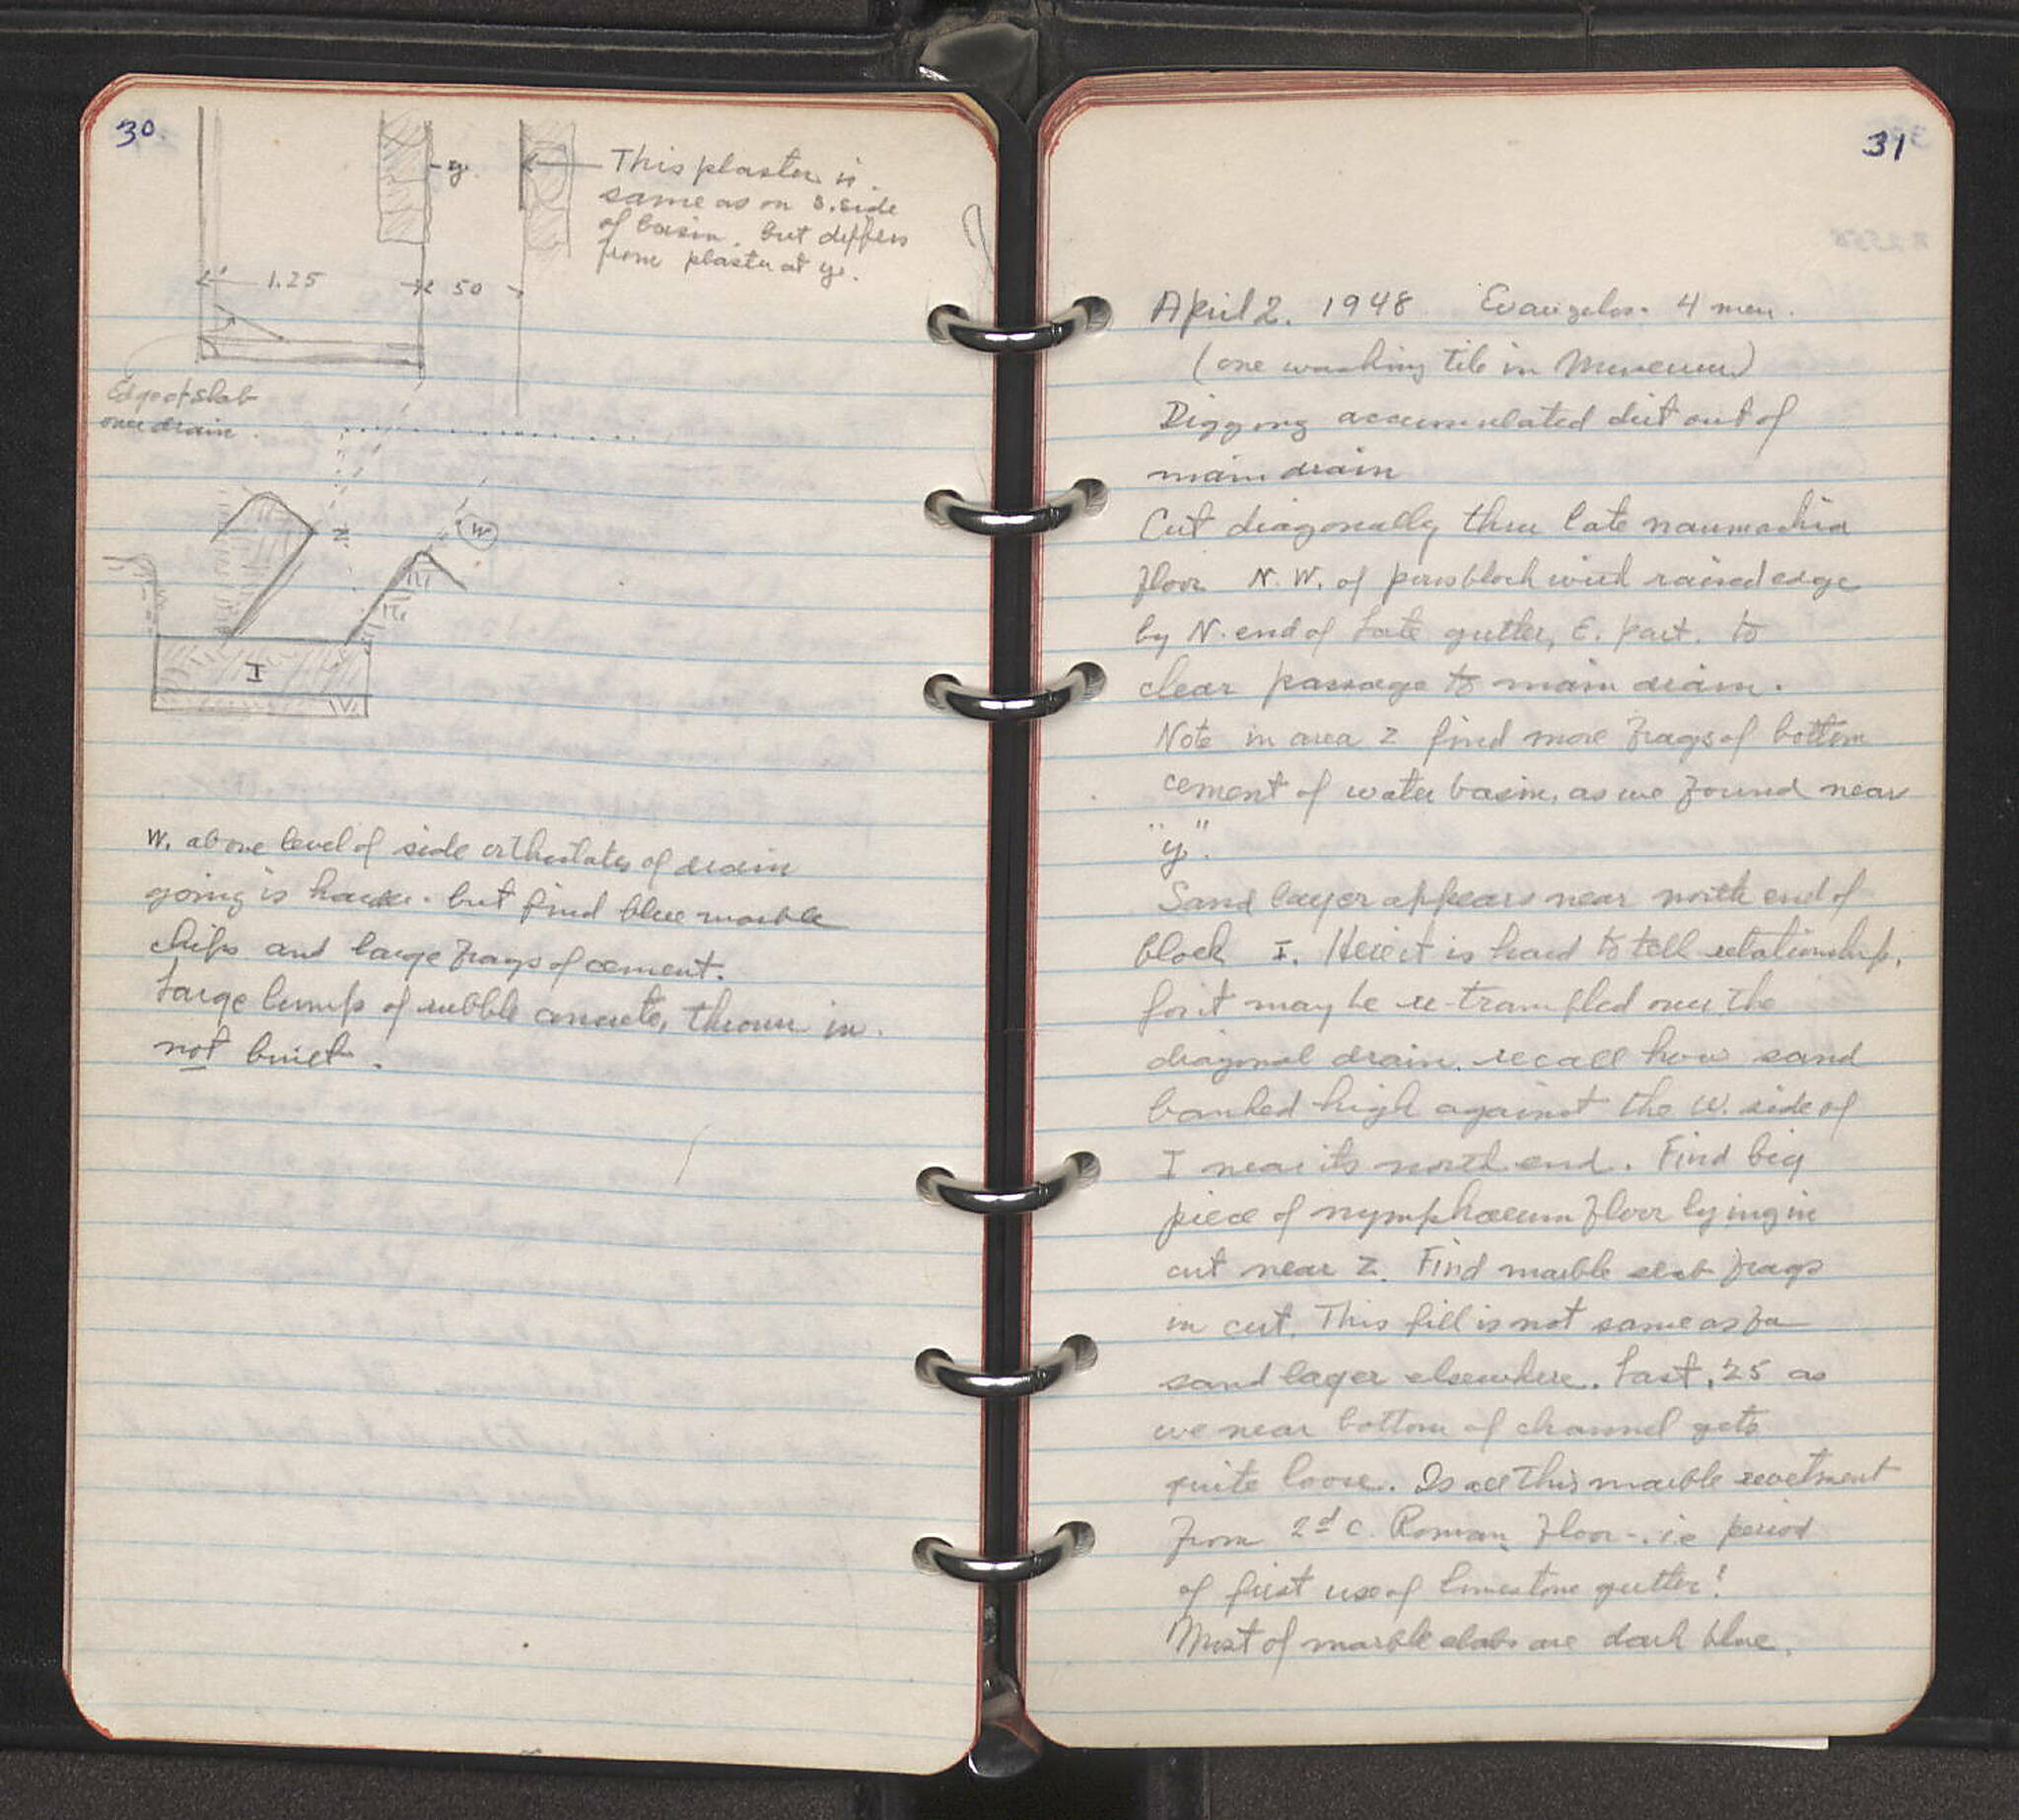 30
y.
This plaster is
same as on S. side
of basin. but differs
from plaster at y.
1.25
50
Edge of slab
over drain.
Z
W
I
W. above level of side orthostates of drain
going is harder. but find blue marble
chips and large frags of cement.
Large lumps of rubble concrete, thrown in.
not built.
31
April 2. 1948 Evangelos. 4 men.
(one washing tile in Museum)
Digging accumulated dirt out of
main drain
Cut diagonally thru late naumachia
floor N.W. of poros block with raised edge
by N. end of Late gutter, E. part. to
clear passage to main drain.
Note in area Z find more frags of bottom
cement of water basin, as we found near
"y".
Sand layer appears near north end of
block I. Here it is hard to tell relationship,
for it may be re-trampled over the
diagonal drain. recall how sand
banked high against the W. side of
I near its north end. Find big
piece of nymphaeum floor lying in
cut near Z. Find marble slab frags
in cut. This fill is not same as for
sand layer elsewhere. Last .25 as
we near bottom of channel gets
quite loose. Is all this marble revetment
from 2d c. Roman floor -. i.e period
of first use of limestone gutter!
Most of marble slabs are dark blue.